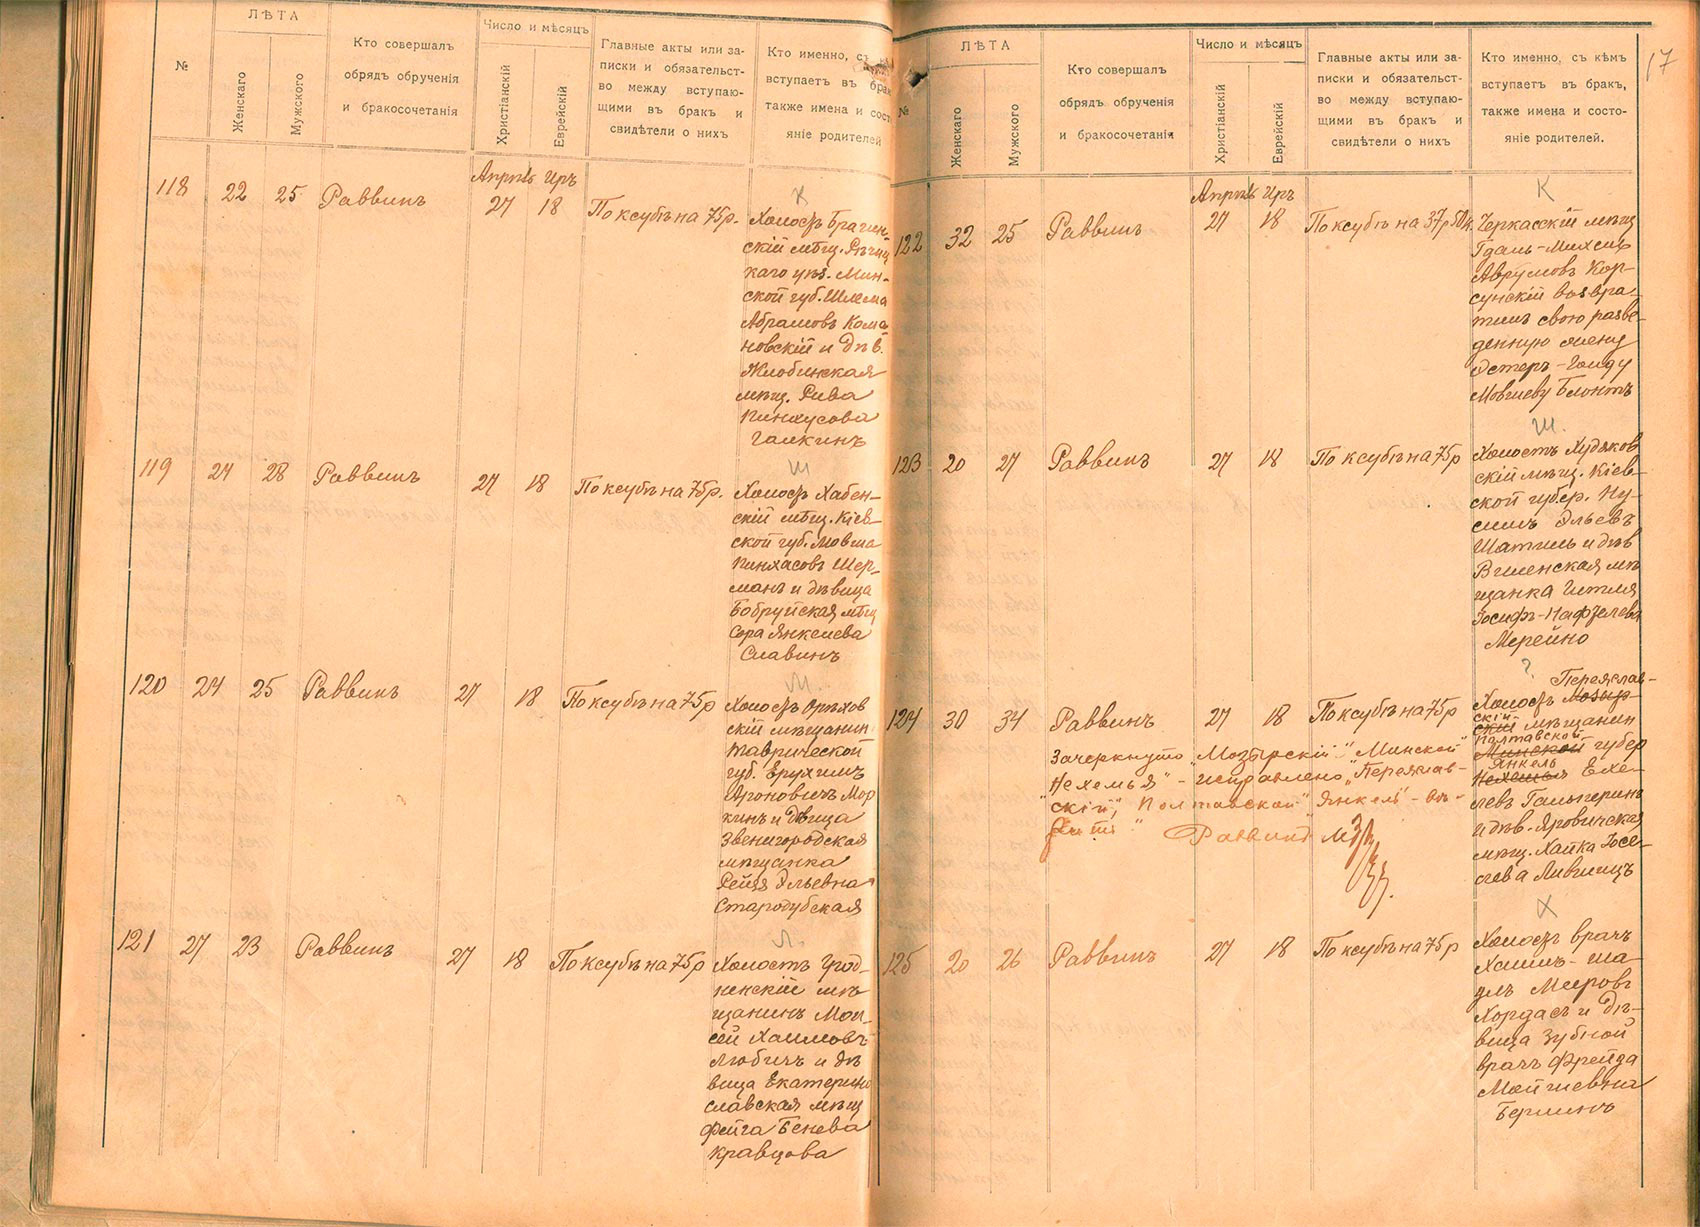 ЛѢТА
№
Женскаго
Мужского
Кто совершалъ
обрядъ обрученія
и бракосочетанія
Число и мѣсяцъ
Христіанскій
Еврейскій
Главные акты или за-
писки и обязательст-
во между вступаю-
щими въ бракъ и
свидѣтели о нихъ
Кто именно, съ
вступаетъ въ брак
также имена и сост
яніе родителей
Апрѣль Иръ
118 22 25 Раввинъ 27 18 По ксубѣ на 75р.
К
Холостъ Брагин-
скій мѣщ. Рѣчиц
каго уѣз. Мин-
ской губ. Шлема
Абрамовъ Кома-
новскій и дѣв.
Жлобинская
мѣщ. Рива
Пинхусова
Галкинъ
119 24 28 Раввинъ 27 18 По ксубѣ на 75р.
Ш
Холостъ Хабен-
скій мѣщ. Кіев-
ской губ. Мовша
Пинхасовъ Шер-
манъ и дѣвица
Бобруйская мѣщ
Сора Янкелева
Славинъ
120 24 25 Раввинъ 27 18 По ксубѣ на 75р
М.
Холостъ Орѣхов
скій мѣщанин
Таврической
губ. Ерухимъ
Ароновичъ Мор
кинъ и дѣвица
Звенигородская
мѣщанка
Рейзя Эльевна
Стародубская
121 27 23 Раввинъ 27 18 По ксубѣ на 75р
Л.
Холостъ Урод-
ненскій мѣ
щанинъ Мои-
сей Хаимовъ
Любичъ и дѣ
вица Екатерино
славская мѣщ
Фейга Бенева
Кравцова
17
ЛѢТА
№
Женскаго
Мужского
Кто совершалъ
обрядъ обрученія
и бракосочетанія
Число и мѣсяцъ
Христіанскій
Еврейскій
Главные акты или за-
писки и обязательст-
во между вступаю-
щими въ бракъ и
свидѣтели о нихъ
Кто именно, съ кѣмъ
вступаетъ въ бракъ,
также имена и состо-
яніе родителей.
Апрѣль Иръ
122 32 25 Раввинъ 27 18 По ксубѣ на 37р 50к.
К
Черкасскій мѣщ
Гдаль-Михель
Аврумовъ Кор-
сунскій возвра-
тилъ свою разве-
денную жену
Эстеръ-Голду
Мовшеву Блонтъ
123 20 27 Раввинъ 27 18 По ксубѣ на 75р
Ш.
Холостъ Худяков
скій мѣщ. Кіев-
ской губер. Ну-
симъ Эльевъ
Шатиль и дѣв
Виленская мѣ
щанка Гитля
Іосифъ-Нафулева
Мерейно
124 30 34 Раввинъ 27 18 По ксубѣ на 75р
?
Переяслав-
Холостъ Мозыр-
скій
скій мѣщанин
Полтавской
Минской губер
Янкель
Нехемья Ехе-
левъ Гальперинъ
и дѣв. Яровинская
мѣщ. Хайка Іосе-
лева Лившицъ
Зачеркнуто „Мозырскій" „Минской"
„Нехемья" - исправлено „Переяслав-
скій", „Полтавской" „Янкель" - вѣ-
Раввинъ
125 20 26 Раввинъ 27 18 По ксубѣ на 75р
Х
Холостъ врачъ
Хаимъ-Ша-
улъ Мееровъ
Хордасъ и дѣ-
вица Зубной
врачъ Фрейда
Мойшевна
Берлинъ